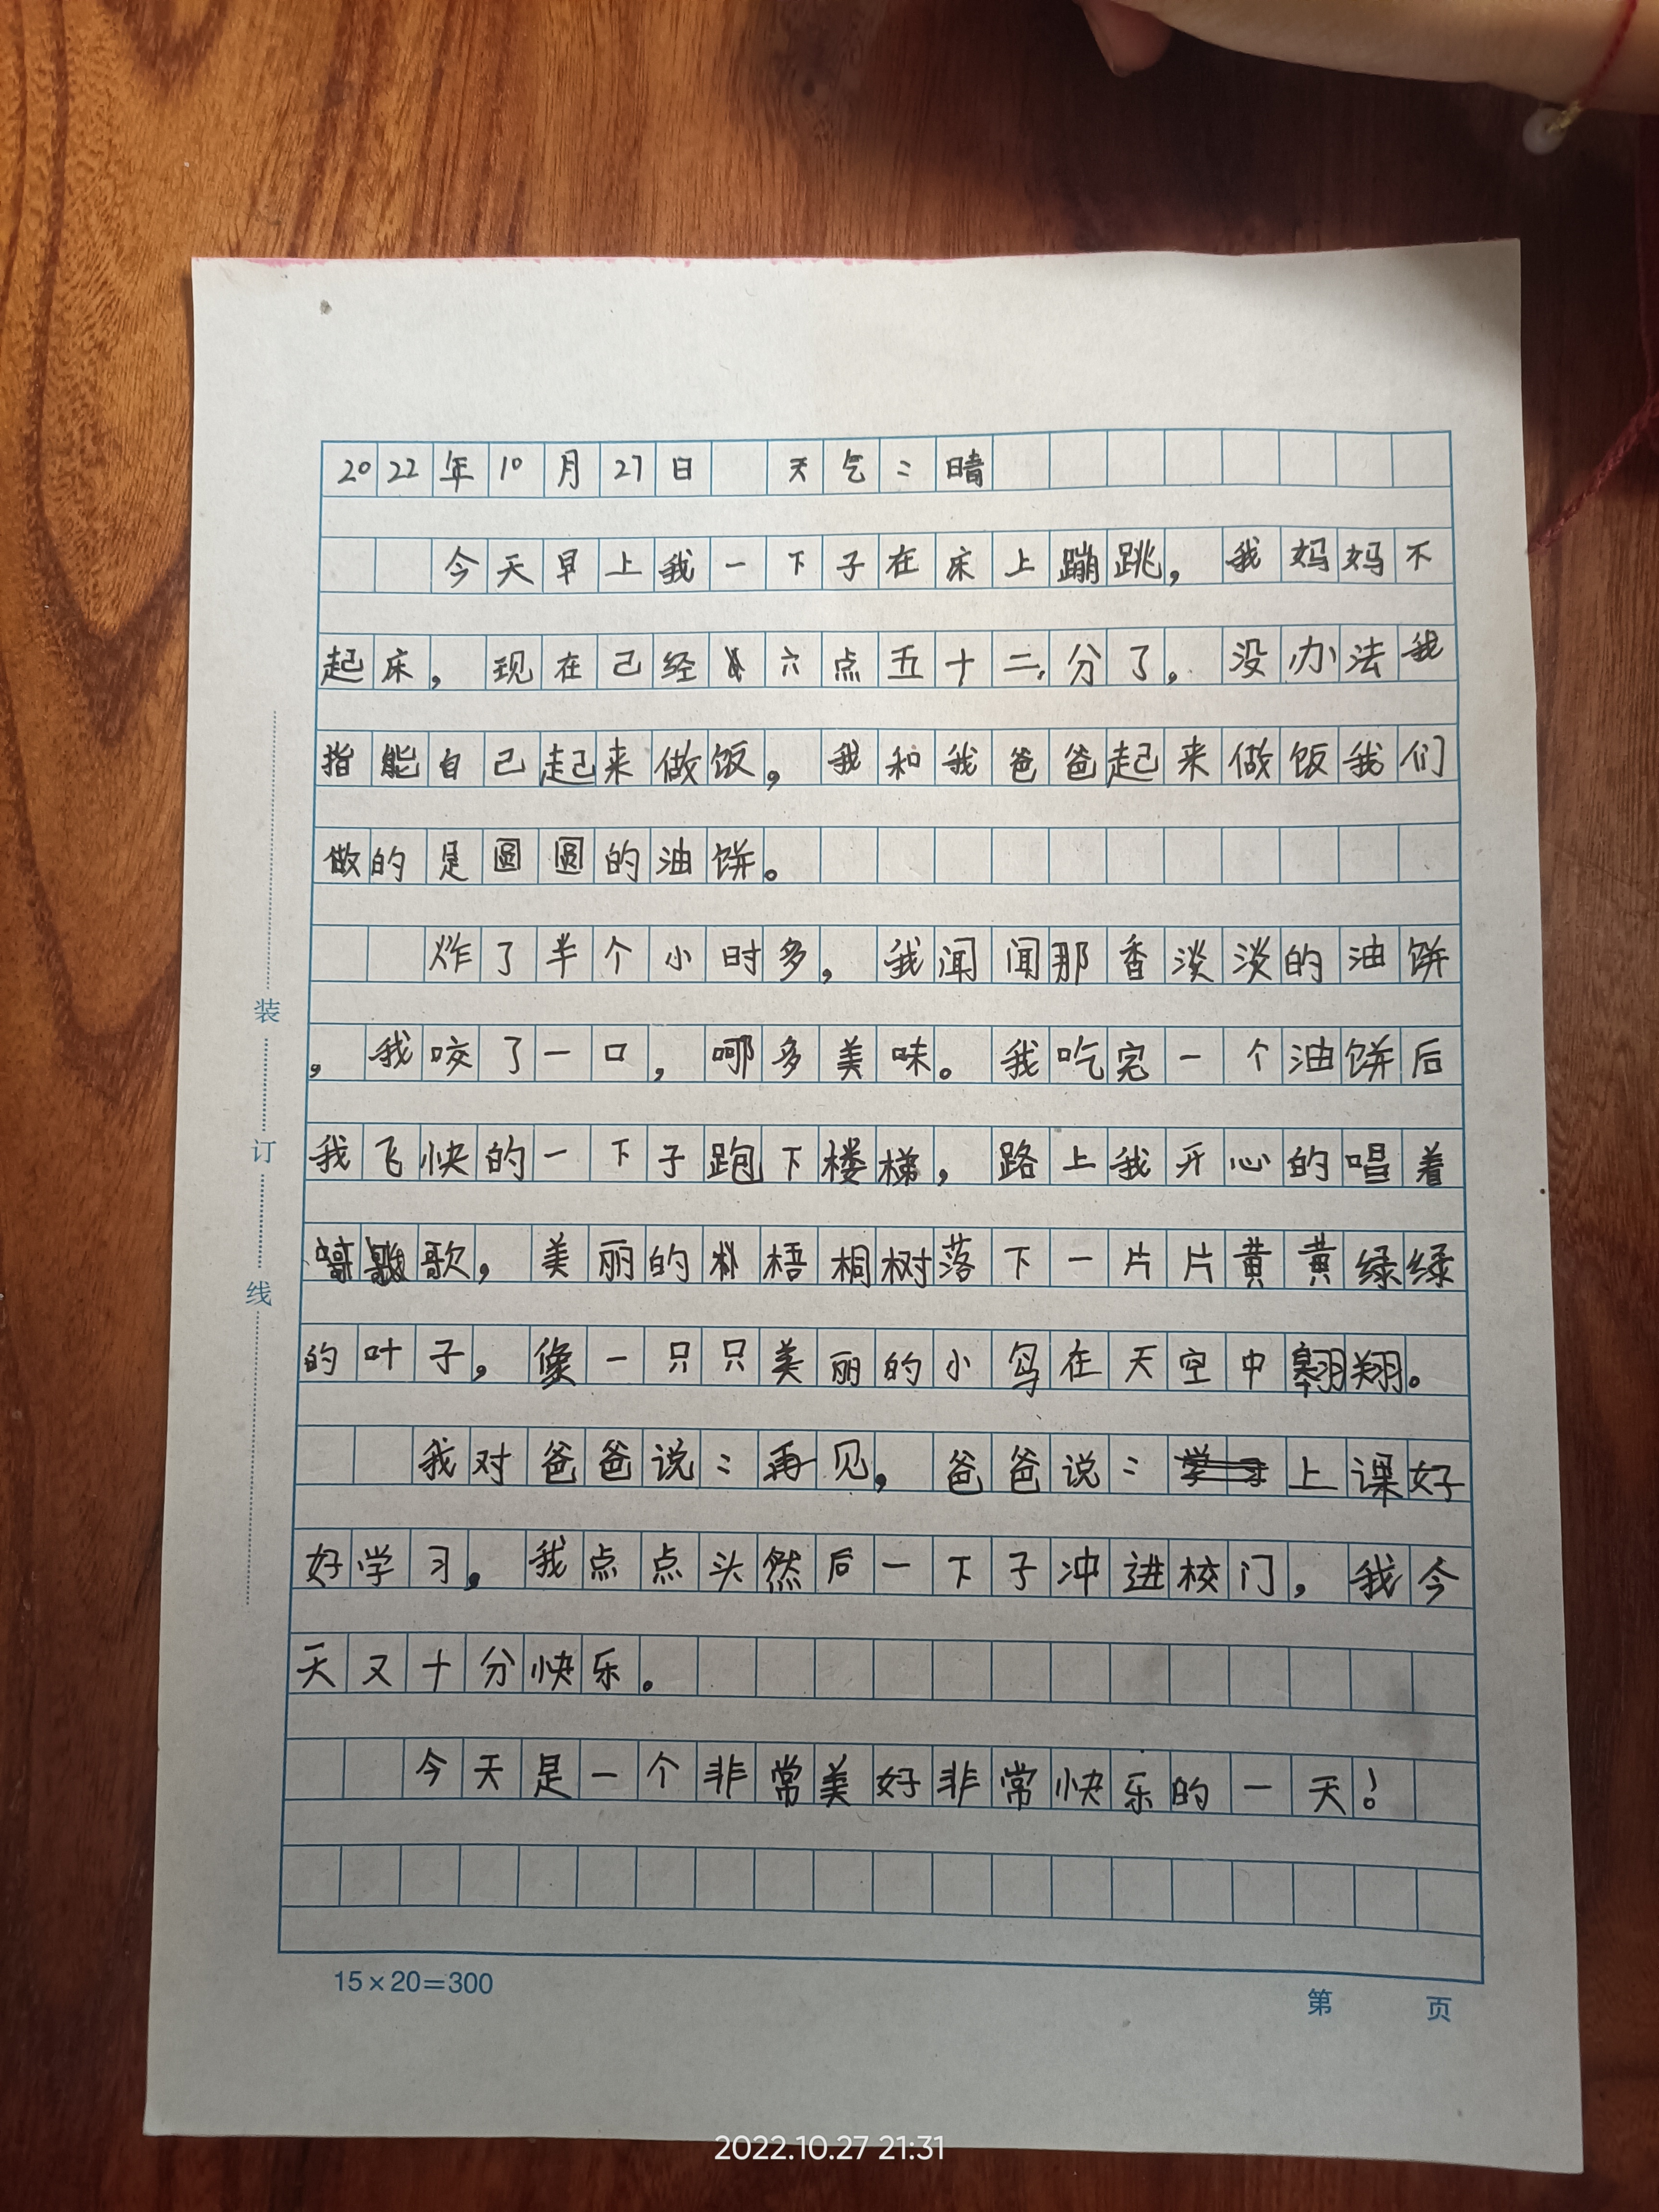 2022年10月27日 天气：晴
今天早上我一下子在床上蹦跳，我妈妈不
起床，现在己经六点五十二分了。没办法我
指能自己起来做饭，我和我爸爸起来做饭我们
做的是圆圆的油饼。
炸了半个小时多，我闻闻那香淡淡的油饼
，我咬了一口，哪多美味。我吃完一个油饼后
我飞快的一下子跑下楼梯，路上我开心的唱着
歌，美丽的梧桐树落下一片片黄黄绿绿
的叶子，像一只只美丽的小鸟在天空中翱翔。
我对爸爸说：再见，爸爸说：上课好
好学习。我点点头然后一下子冲进校门，我今
天又十分快乐。
今天是一个非常美好非常快乐的一天！
装
订
线
15×20=300
第 页
2022.10.27 21:31